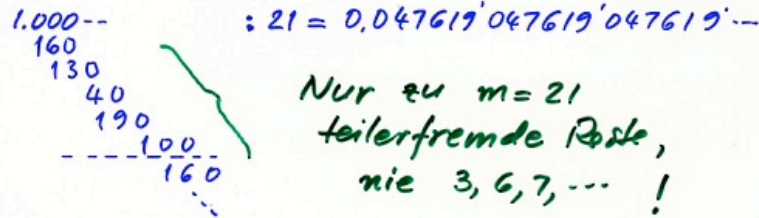 1.000-- : 21 = 0,047619'047619'047619'--
160
130
40
190
100
160
Nur zu m = 21
teilerfremde Reste,
nie 3, 6, 7, --- !